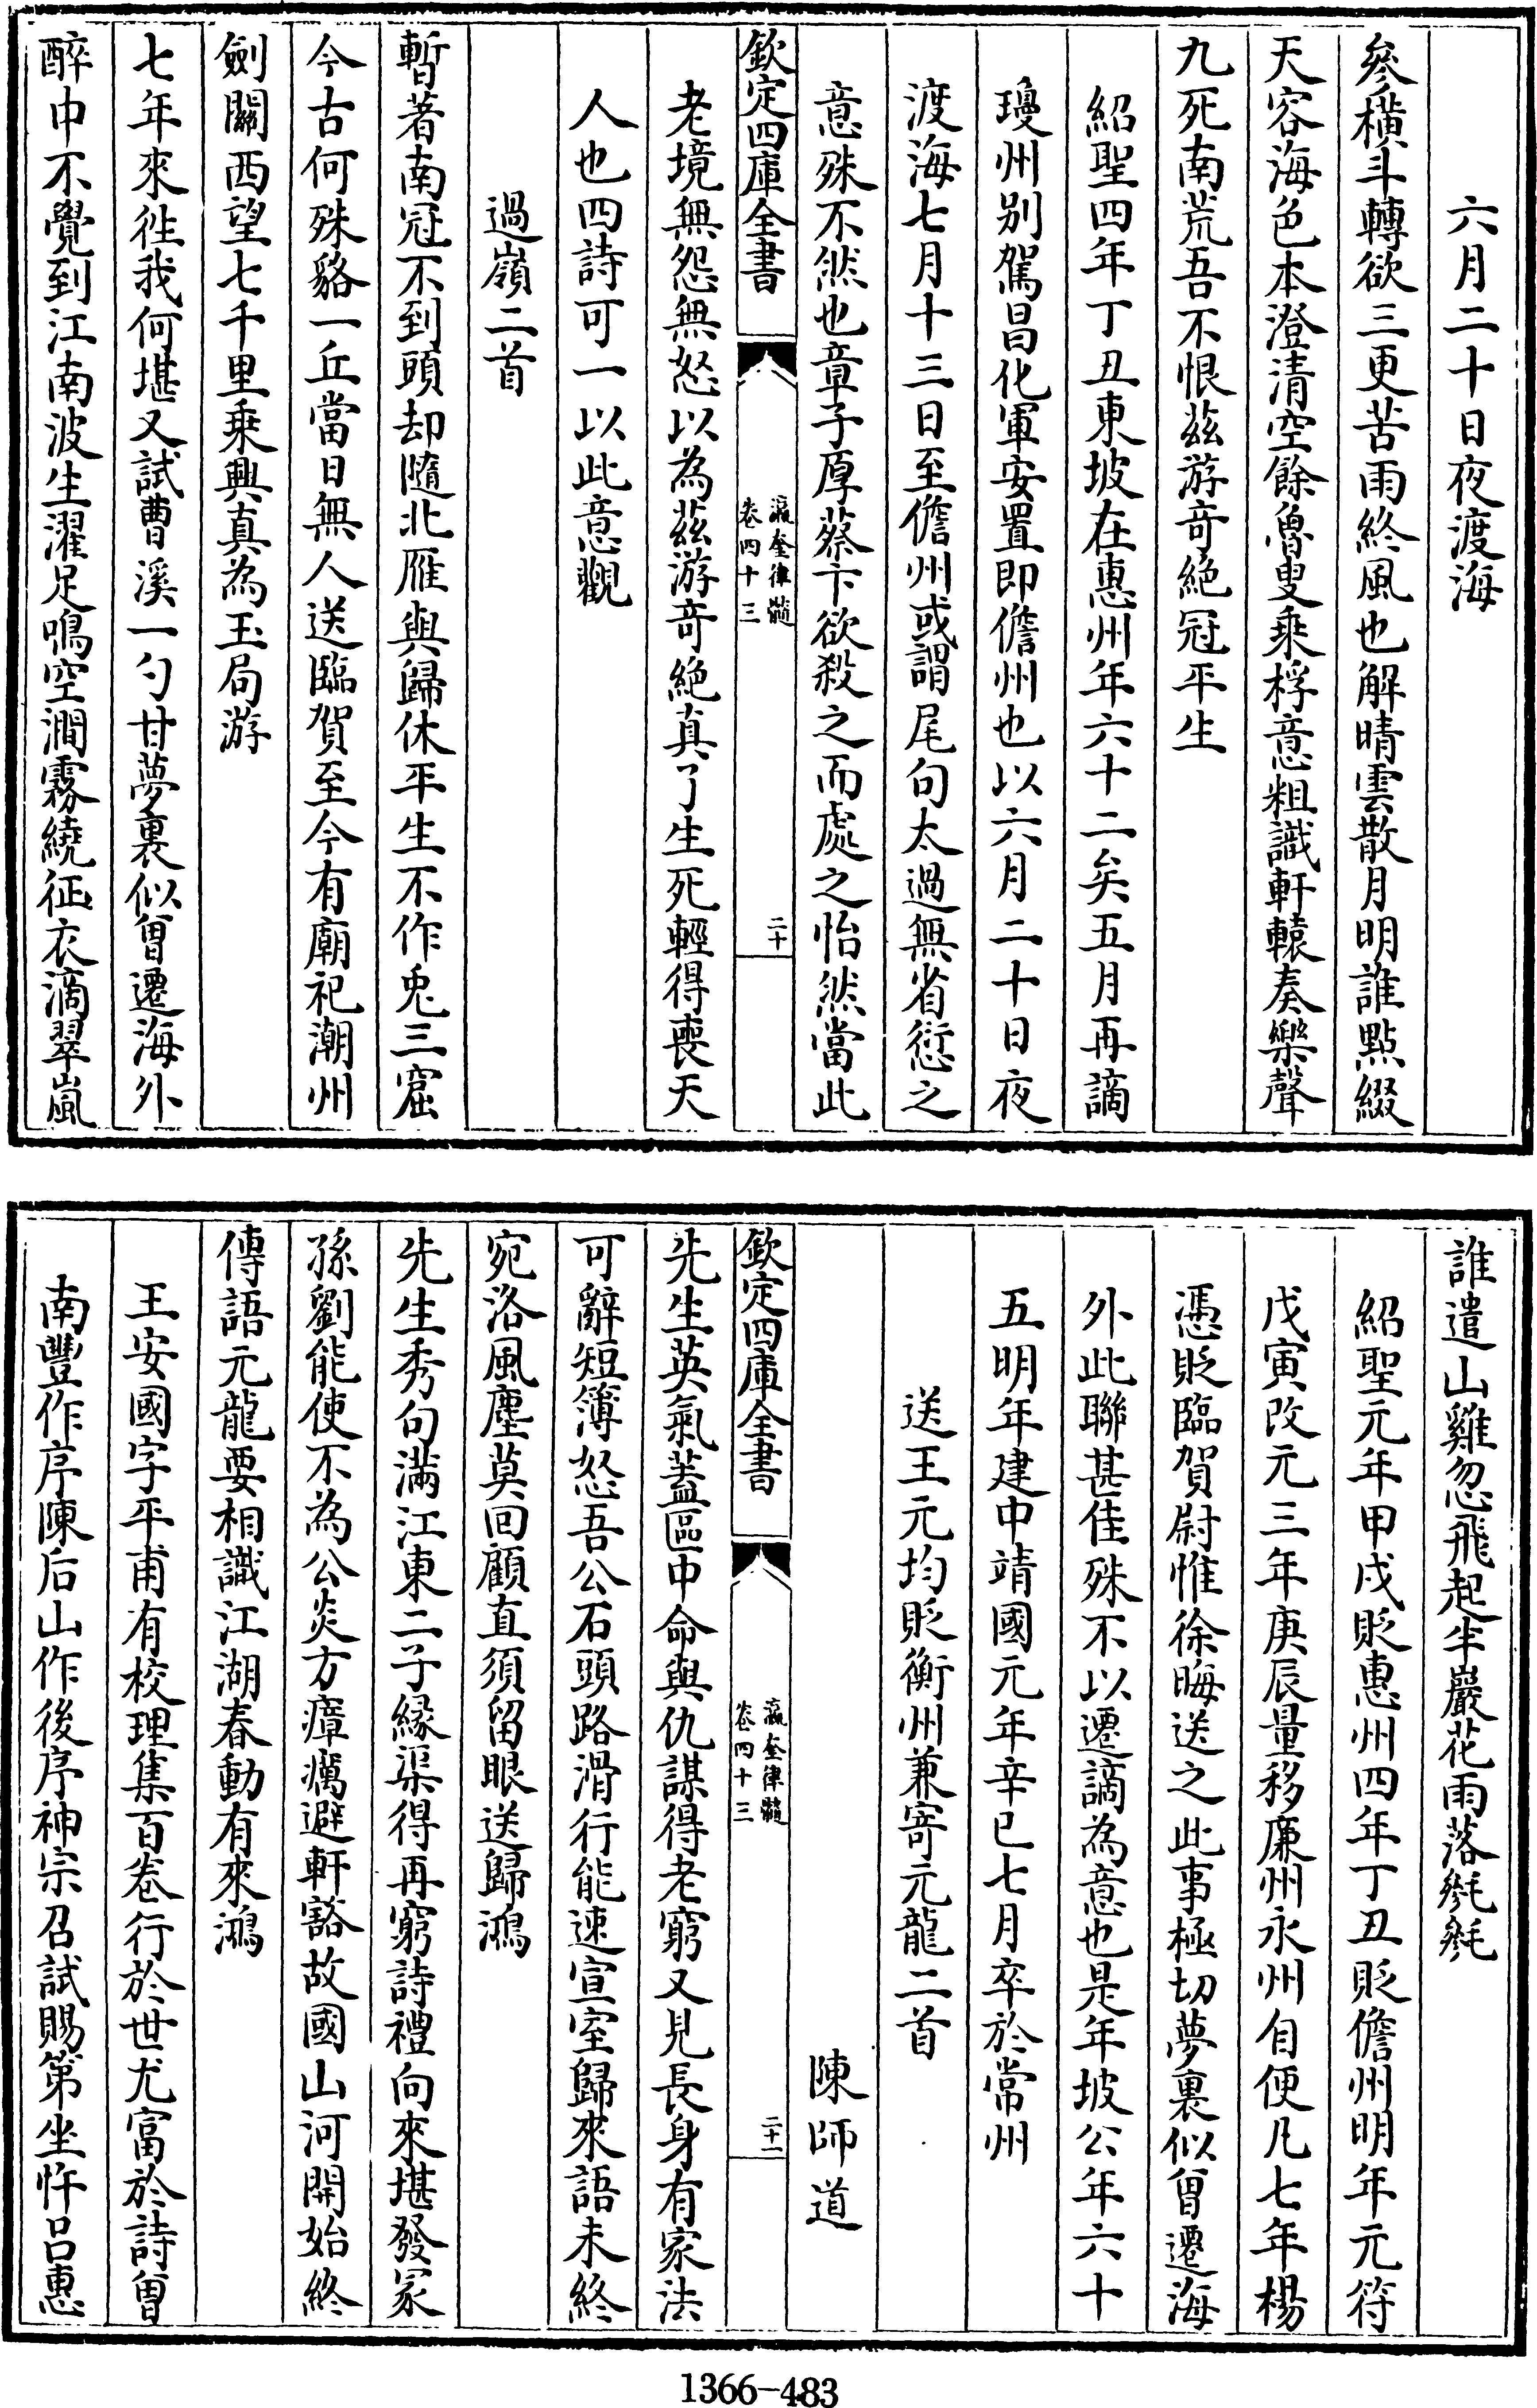 六月二十日夜渡海
參橫斗轉欲三更苦雨終風也解晴雲散月明誰點綴
天容海色本澄清空餘魯叟乘桴意粗識軒轅奏樂聲
九死南荒吾不恨茲游奇絕冠平生
紹聖四年丁丑東坡在惠州年六十二矣五月再謫
瓊州别駕昌化軍安置即儋州也以六月二十日夜
渡海七月十三日至儋州或謂尾句太過無省愆之
意殊不然也章子厚蔡卞欲殺之而處之怡然當此
欽定四庫全書
瀛奎律髓
卷四十三
二十
老境無怨無怒以為茲游奇絕真了生死輕得喪天
人也四詩可一以此意觀
過嶺二首
暫著南冠不到頭却隨北雁與歸休平生不作兎三窟
今古何殊貉一丘當日無人送臨賀至今有廟祀潮州
劍關西望七千里乘興真為玉局游
七年來往我何堪又試曹溪一勺甘夢裏似曾遷海外
醉中不覺到江南波生濯足鳴空澗霧繞征衣滴翠嵐
誰遣山雞忽飛起半巖花雨落毿毿
紹聖元年甲戌貶惠州四年丁丑貶儋州明年元符
戊寅改元三年庚辰量移廉州永州自便凡七年楊
憑貶臨賀尉惟徐晦送之此事極切夢裏似曾遷海
外此聯甚佳殊不以遷謫為意也是年坡公年六十
五明年建中靖國元年辛巳七月卒於常州
送王元均貶衡州兼寄元龍二首
陳師道
欽定四庫全書
瀛奎律髓
卷四十三
二十一
先生英氣蓋區中命與仇謀得老窮又見長身有家法
可辭短簿怒吾公石頭路滑行能速宣室歸來語未終
宛洛風塵莫回顧直須留眼送歸鴻
先生秀句滿江東二子緣渠得再窮詩禮向來堪發冢
孫劉能使不為公炎方瘴癘避軒豁故國山河開始終
傳語元龍要相識江湖春動有來鴻
王安國字平甫有校理集百卷行於世尤富於詩曾
南豐作序陳后山作後序神宗召試賜第坐忤呂惠
1366-483